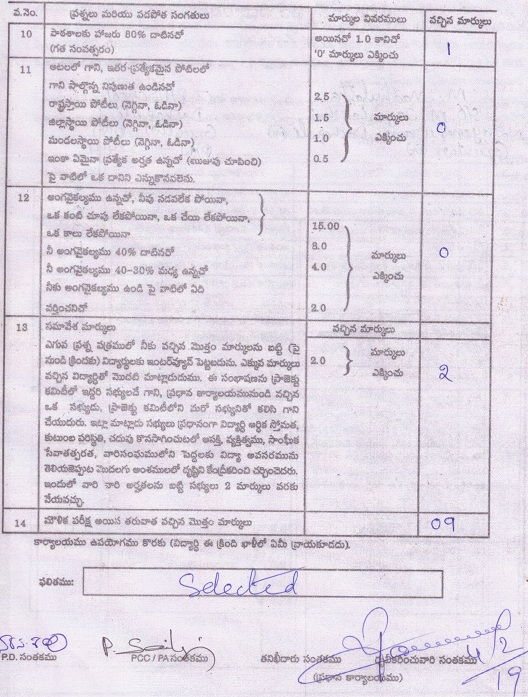 వ.నెం. ప్రశ్నలు మరియు పదపోత సంగతులు మార్కుల వివరములు వచ్చిన మార్కులు
10 పాఠశాలకు హాజరు 80% దాటినదో అయినచో 1.0 కానిచో 1
(గత సంవత్సరం) '0' మార్కులు ఎక్కించు
11 ఆటలలో గాని, ఇతర ప్రత్యేకమైన పోటీలలో
గాని పాల్గొన్న నిపుణత ఉండినదో
రాష్ట్రస్థాయి పోటీలు (నెగ్గినా, ఓడినా) 2.5 మార్కులు 0
జిల్లాస్థాయి పోటీలు (నెగ్గినా, ఓడినా) 1.5 ఎక్కించు
మండలస్థాయి పోటీలు (నెగ్గినా, ఓడినా) 1.0
ఇంకా ఏమైనా ప్రత్యేక అర్హత ఉన్నచో (ఋజువు చూపించి) 0.5
పై వాటిలో ఒక దానిని ఎన్నుకొనవలెను.
12 అంగవైకల్యము ఉన్నచో, నీవు నడవలేక పోయినా,
ఒక కంటి చూపు లేకపోయినా, ఒక చేయి లేకపోయినా, 15.00
ఒక కాలు లేకపోయినా
నీ అంగవైకల్యము 40% దాటినదో 8.0 మార్కులు 0
నీ అంగవైకల్యము 40-30% మధ్య ఉన్నదో 4.0 ఎక్కించు
నీకు అంగవైకల్యము ఉండి పై వాటిలో ఏది
వర్తించనిదో 2.0
13 సమావేశ మార్కులు వచ్చిన మార్కులు
ఎగువ ప్రశ్న పత్రములో నీకు వచ్చిన మొత్తం మార్కులను బట్టి (పై
నుండి క్రిందకు) విద్యార్థులకు ఇంటర్వ్యూర్ పెట్టబడును. ఎక్కువ మార్కులు 2.0 మార్కులు
వచ్చిన విద్యార్థితో మొదటి మాట్లాడుదుము. ఈ సంభాషణను ప్రాజెక్టు ఎక్కించు 2
కమిటీలో ఇద్దరి సభ్యులచే గాని, ప్రధాన కార్యాలయమునుండి వచ్చిన
ఒక సభ్యుడు, ప్రాజెక్టు కమిటీలోని మరో సభ్యునితో కలిసి గాని
చేయుదురు. ఇట్లా మాట్లాడు సభ్యులు ప్రధానంగా విద్యార్థి ఆర్థిక స్తోమత,
కుటుంబ పరిస్థితి, చదువు కొనసాగించుటలో ఆసక్తి, వ్యక్తిత్వము, సాంఘిక
సేవాతత్పరత, వారిసంఘములోని పెద్దలకు విద్యా అవసరమును
తెలియజెప్పుట మొదలగు అంశములలో దృష్టిని కేంద్రీకరించి చర్చించెదరు.
ఇందులో వారి వారి అర్హతలను బట్టి సభ్యులు 2 మార్కులు వరకు
వేయవచ్చు.
14 మౌళిక పరీక్ష అయిన తరువాత వచ్చిన మొత్తం మార్కులు 09
కార్యాలయము ఉపయోగము కొరకు (విద్యార్థి ఈ క్రింది ఖాళీలో ఏమీ వ్రాయకూడదు).
ఫలితము: Selected
P.D. సంతకము PCC / PA సంతకము తనిఖీదారు సంతకము ధృవీకరించువారి సంతకము 4/2/19
(ప్రధాన కార్యాలయము)